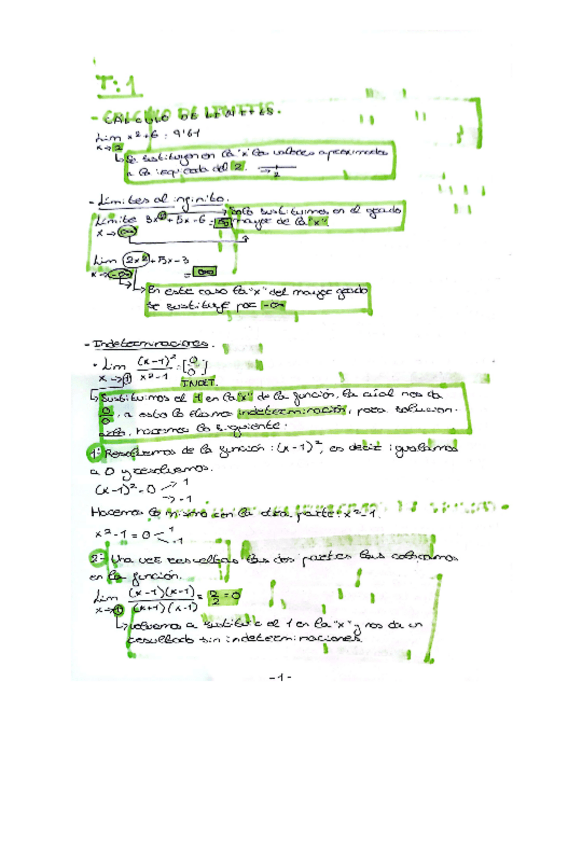 T:1
- CALCULO DE LIMITES.
Lim x²+6 = 9'61
x→2
Se sustituyen en la "x" los valores aproximados
a la izquierda del 2. →2
- Límites al infinito.
Límite 3x²+5x-6 = ∞
x→∞
solo sustituimos en el grado
mayor de la "x"
Lim 2x²+5x-3
x→-∞ = ∞
En este caso la "x" del mayor grado
se sustituye por -∞
- Indeterminaciones.
• Lim (x-1)² / x²-1 = [0/0]
x→1
INDET.
Sustituimos el 1 en la "x" de la función, la cúal nos da
0/0, a esto lo llama indeterminación, para solucion-
arlo, hacemos lo siguiente:
1º Resolvemos de la función: (x-1)², es decir igualamos
a 0 y resolvemos.
(x-1)²=0 → 1
→ -1
Hacemos lo mismo con la otra parte: x²-1
x²-1=0 1
-1
2º- Una vez resueltas las dos partes las colocamos
en la función.
Lim (x-1)(x-1) / (x+1)(x-1) = 0
x→1
volvemos a sustituir el 1 en la "x" y nos da un
resultado sin indeterminaciones.
-1-